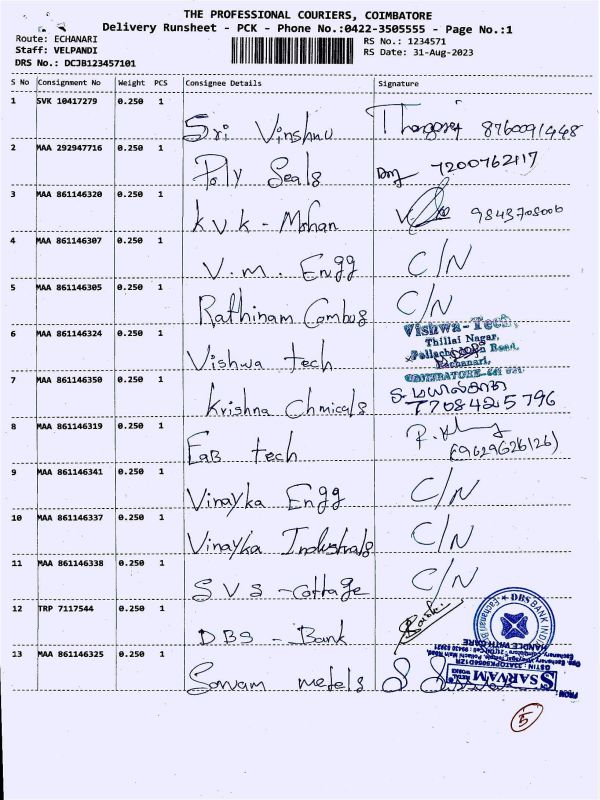 THE PROFESSIONAL COURIERS, COIMBATORE
Delivery Runsheet - PCK - Phone No.:0422-3505555 - Page No.:1
Route: ECHANARI
RS No.: 1234571
Staff: VELPANDI
RS Date: 31-Aug-2023
DRS No.: DCJB123457101
S No Consignment No Weight PCS Consignee Details Signature
1 SVK 10417279 0.250 1 Sri Vinshnu 8760091448
2 MAA 292947716 0.250 1 Poly Seals 7200762117
3 MAA 861146320 0.250 1 KVK - Mohan 9843708006
4 MAA 861146307 0.250 1 V.M. Engg C/N
5 MAA 861146305 0.250 1 Rathinam Combus C/N
Vishwa-Tech,
Thillai Nagar,
Pollachi Main Road,
6 MAA 861146324 0.250 1 Vishwa tech
Eachanari,
COIMBATORE-641 021
7 MAA 861146350 0.250 1 Krishna Chmicals
7708425796
8 MAA 861146319 0.250 1 Fab tech
(9629626126)
9 MAA 861146341 0.250 1 Vinayka Engg C/N
10 MAA 861146337 0.250 1 Vinayka Industrials C/N
11 MAA 861146338 0.250 1 SVS - Cottage C/N
12 TRP 7117544 0.250 1 DBS - Bank
DBS BANK INDIA
HANDLE WITH CARE
13 MAA 861146325 0.250 1 Sarvam metels
SARVAM
METAL WORKS
FROM:
5